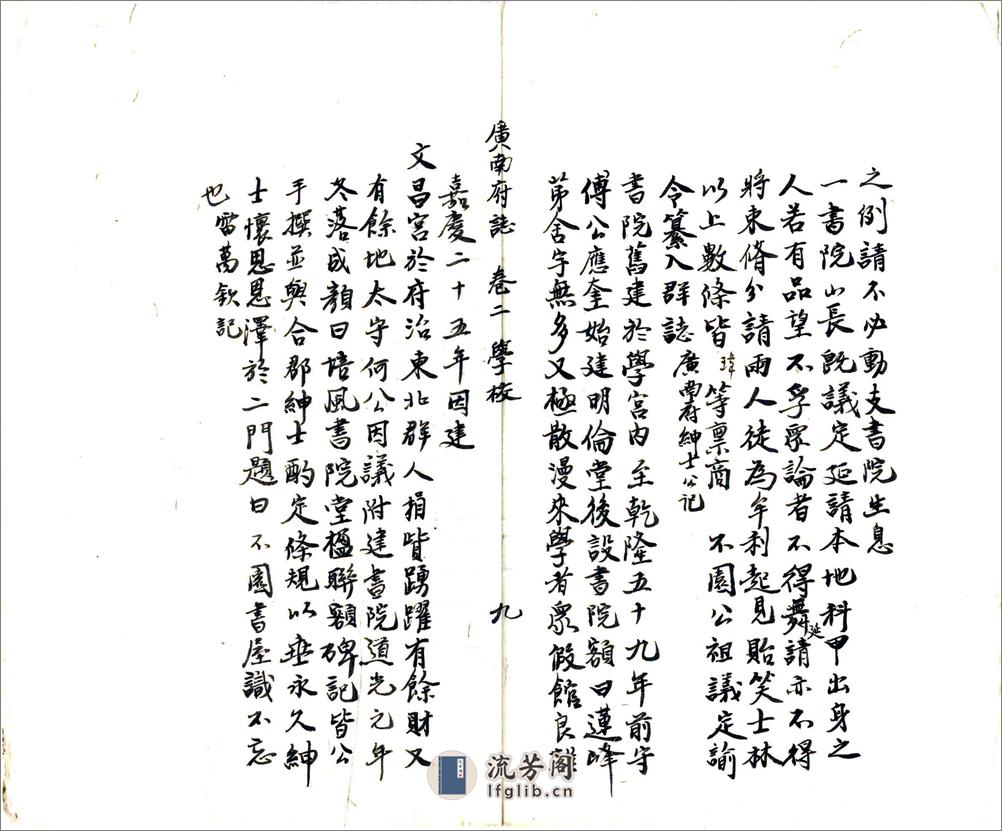 之例請不必動支書院生息
一書院山長旣議定延請本地科甲出身之
人若有品望不孚眾論者不得舞延請亦不得
將束脩分請兩人徒為牟利起見貽笑士林
以上數條皆瑋等禀商 不園公祖議定諭
令纂入群誌廣南府紳士公记
書院舊建於學宫内至乾隆五十九年前守
傅公應奎始建明倫堂後設書院額曰蓮峰
苐舍字無多又極散漫來學者眾假館良難
廣南府誌 卷二 學校 九
嘉慶二十五年因建
文昌宮於府治東北群人捐貲踴躍有餘財又
有餘地太守何公因議附建書院道光元年
冬落成顏曰培風書院堂楹聯額碑記皆公
手撰並與合郡紳士酌定條規以垂永久紳
士懷恩恩澤於二門題曰不園書屋識不忘
也 雷萬欽記
流芳阁
lfglib.cn